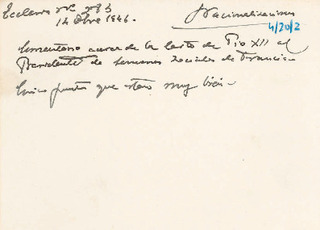 Ecclesia nº 283
14 Dbre 1946.
Nacionalizaciones
4/20/2
Comentario acerca de la carta de Pio XII al
Presidente de Semanas Sociales de Francia
puntos que estan muy bien